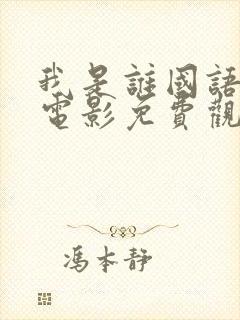 我是誰國語
電影免費觀
馮本靜